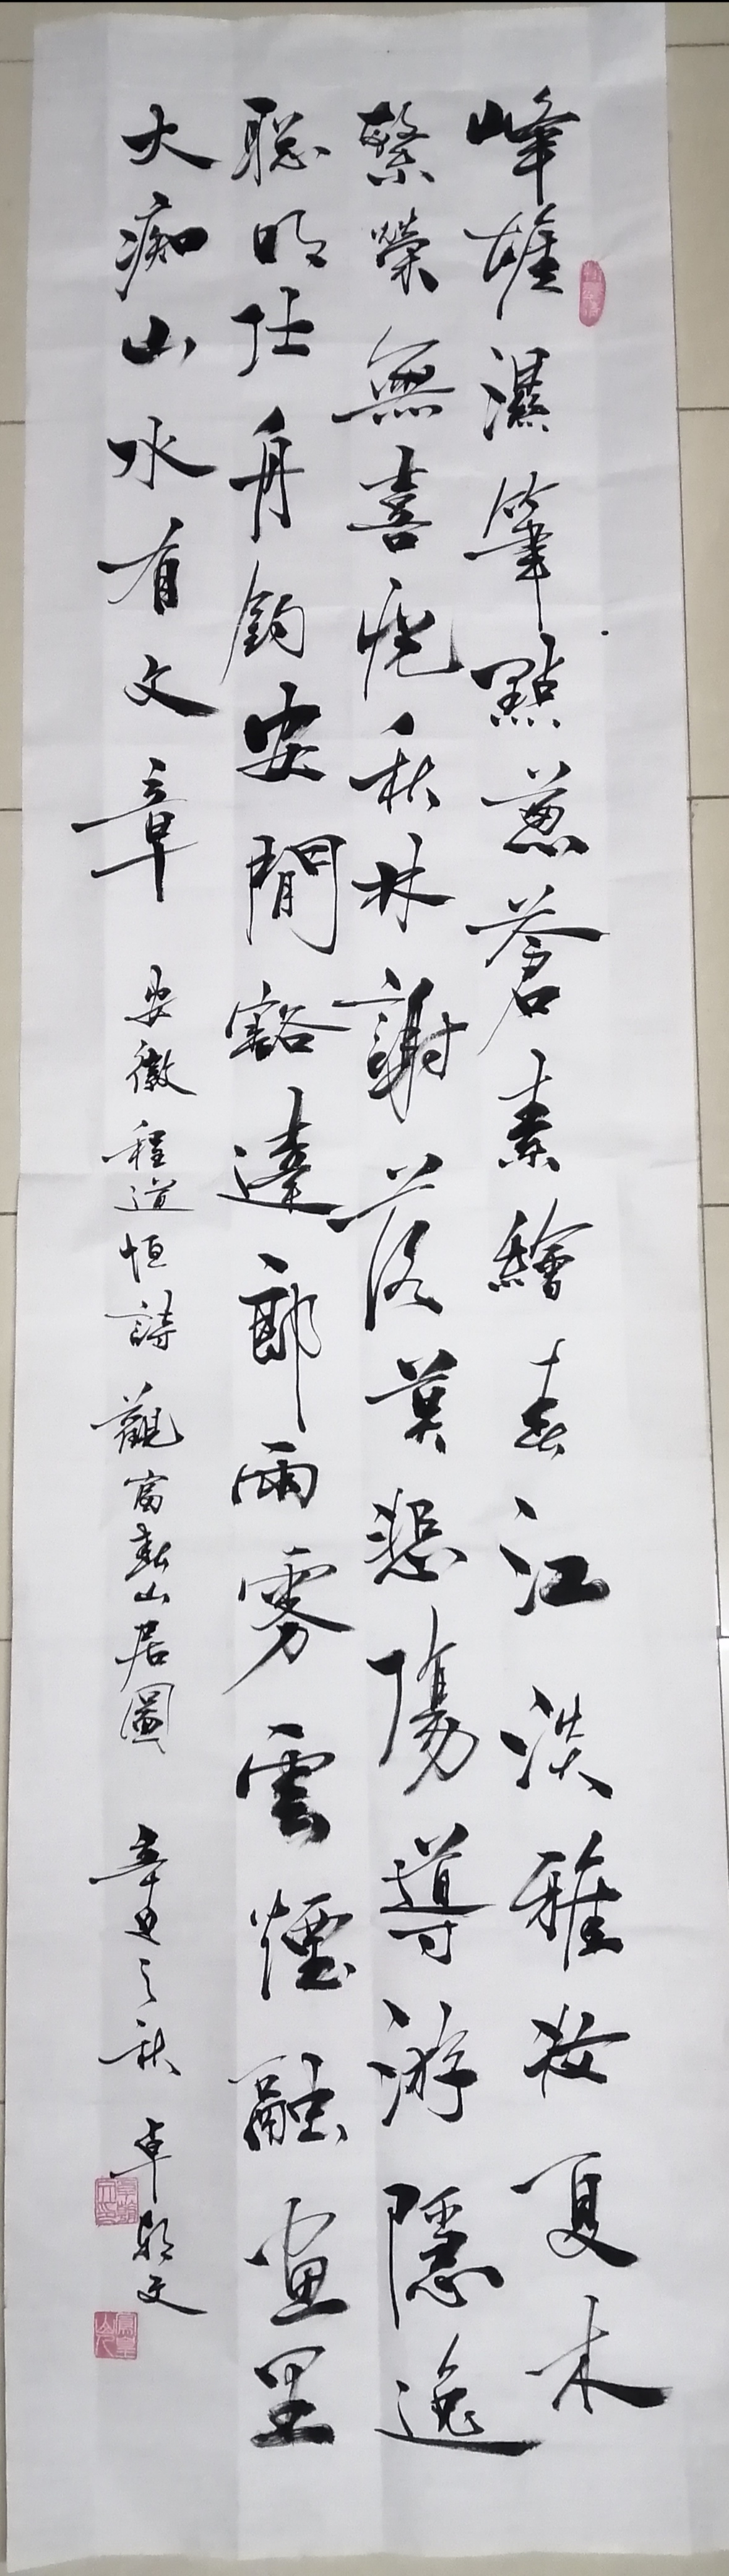 峰雄濕筆點蔥蒼素繪春江淡雅妝夏木
繁榮無喜悅秋林謝落莫悲傷導游隱逸
聪明仕舟釣安閒豁達郎雨雾雲煙融畫里
大痴山水有文章 安徽程道恒詩 觀富春山居圖 辛丑之秋 卓